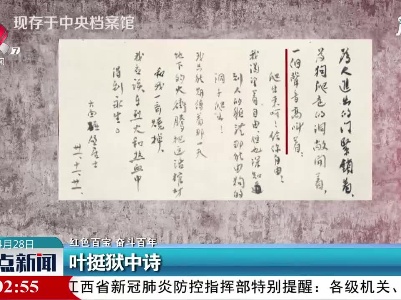 现存于中央档案馆
為人進出的门紧锁着，
為狗爬走的洞敞開着，
一個聲音高叫着：
爬出来呵！给你自由！
我渴望着自由但也深知
到人的躯體那能由狗的
洞子爬出！
我只能期待着那一天
地下的火冲腾把这活棺材
和我一齐燒掉，
我应该在烈火和热血中
得到永生。
六面碰壁居士
红色百宝 奋斗百年
月28日
点新闻
叶挺狱中诗
02:55
江西省新冠肺炎防控指挥部特别提醒：各级机关、